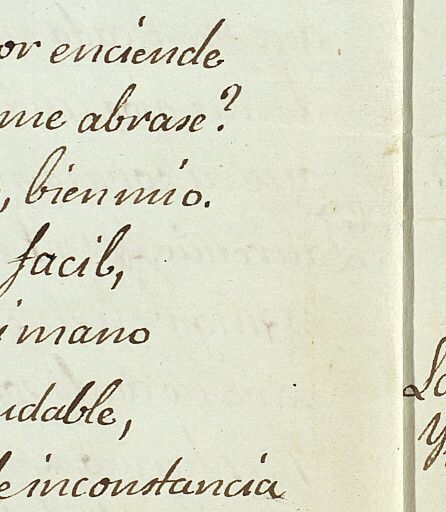 or enciende
me abrase?
, bien mio.
facil,
i mano
udable,
e inconstancia
Lo
y